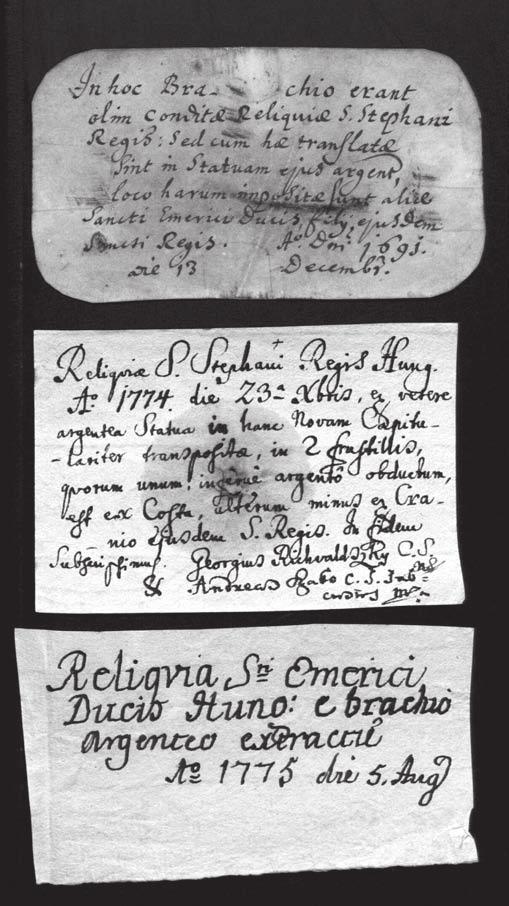 In hoc Bra- chio erant
olim conditæ Reliquiæ S. Stephani
Regis: Sed cum hæ translatæ
sint in Statuam ejus argent,
loco harum impositæ sunt aliæ
Sancti Emerici Ducis filij ejusdem
Sancti Regis. Aô Dni 1691.
die 13 Decembr.
Reliquiæ S. Stephani Regis Hung.
Aº 1774 die 23ª Xbris, ex vetere
argentea Statua in hanc Novam Capitu-
-lariter transpositæ, in 2 frustillis,
quorum unum inferne argentô obductum,
est ex Costa, alterum minus ex Cra-
nio ejusdem S. Regis. In fidem
Subscripsimus. Georgius Richvaldszky C. S.
& Andreas Szabo C. S.
Reliqvia Sti Emerici
Ducis Hung: e brachio
argenteo extractæ
Aº 1775 die 5. Aug